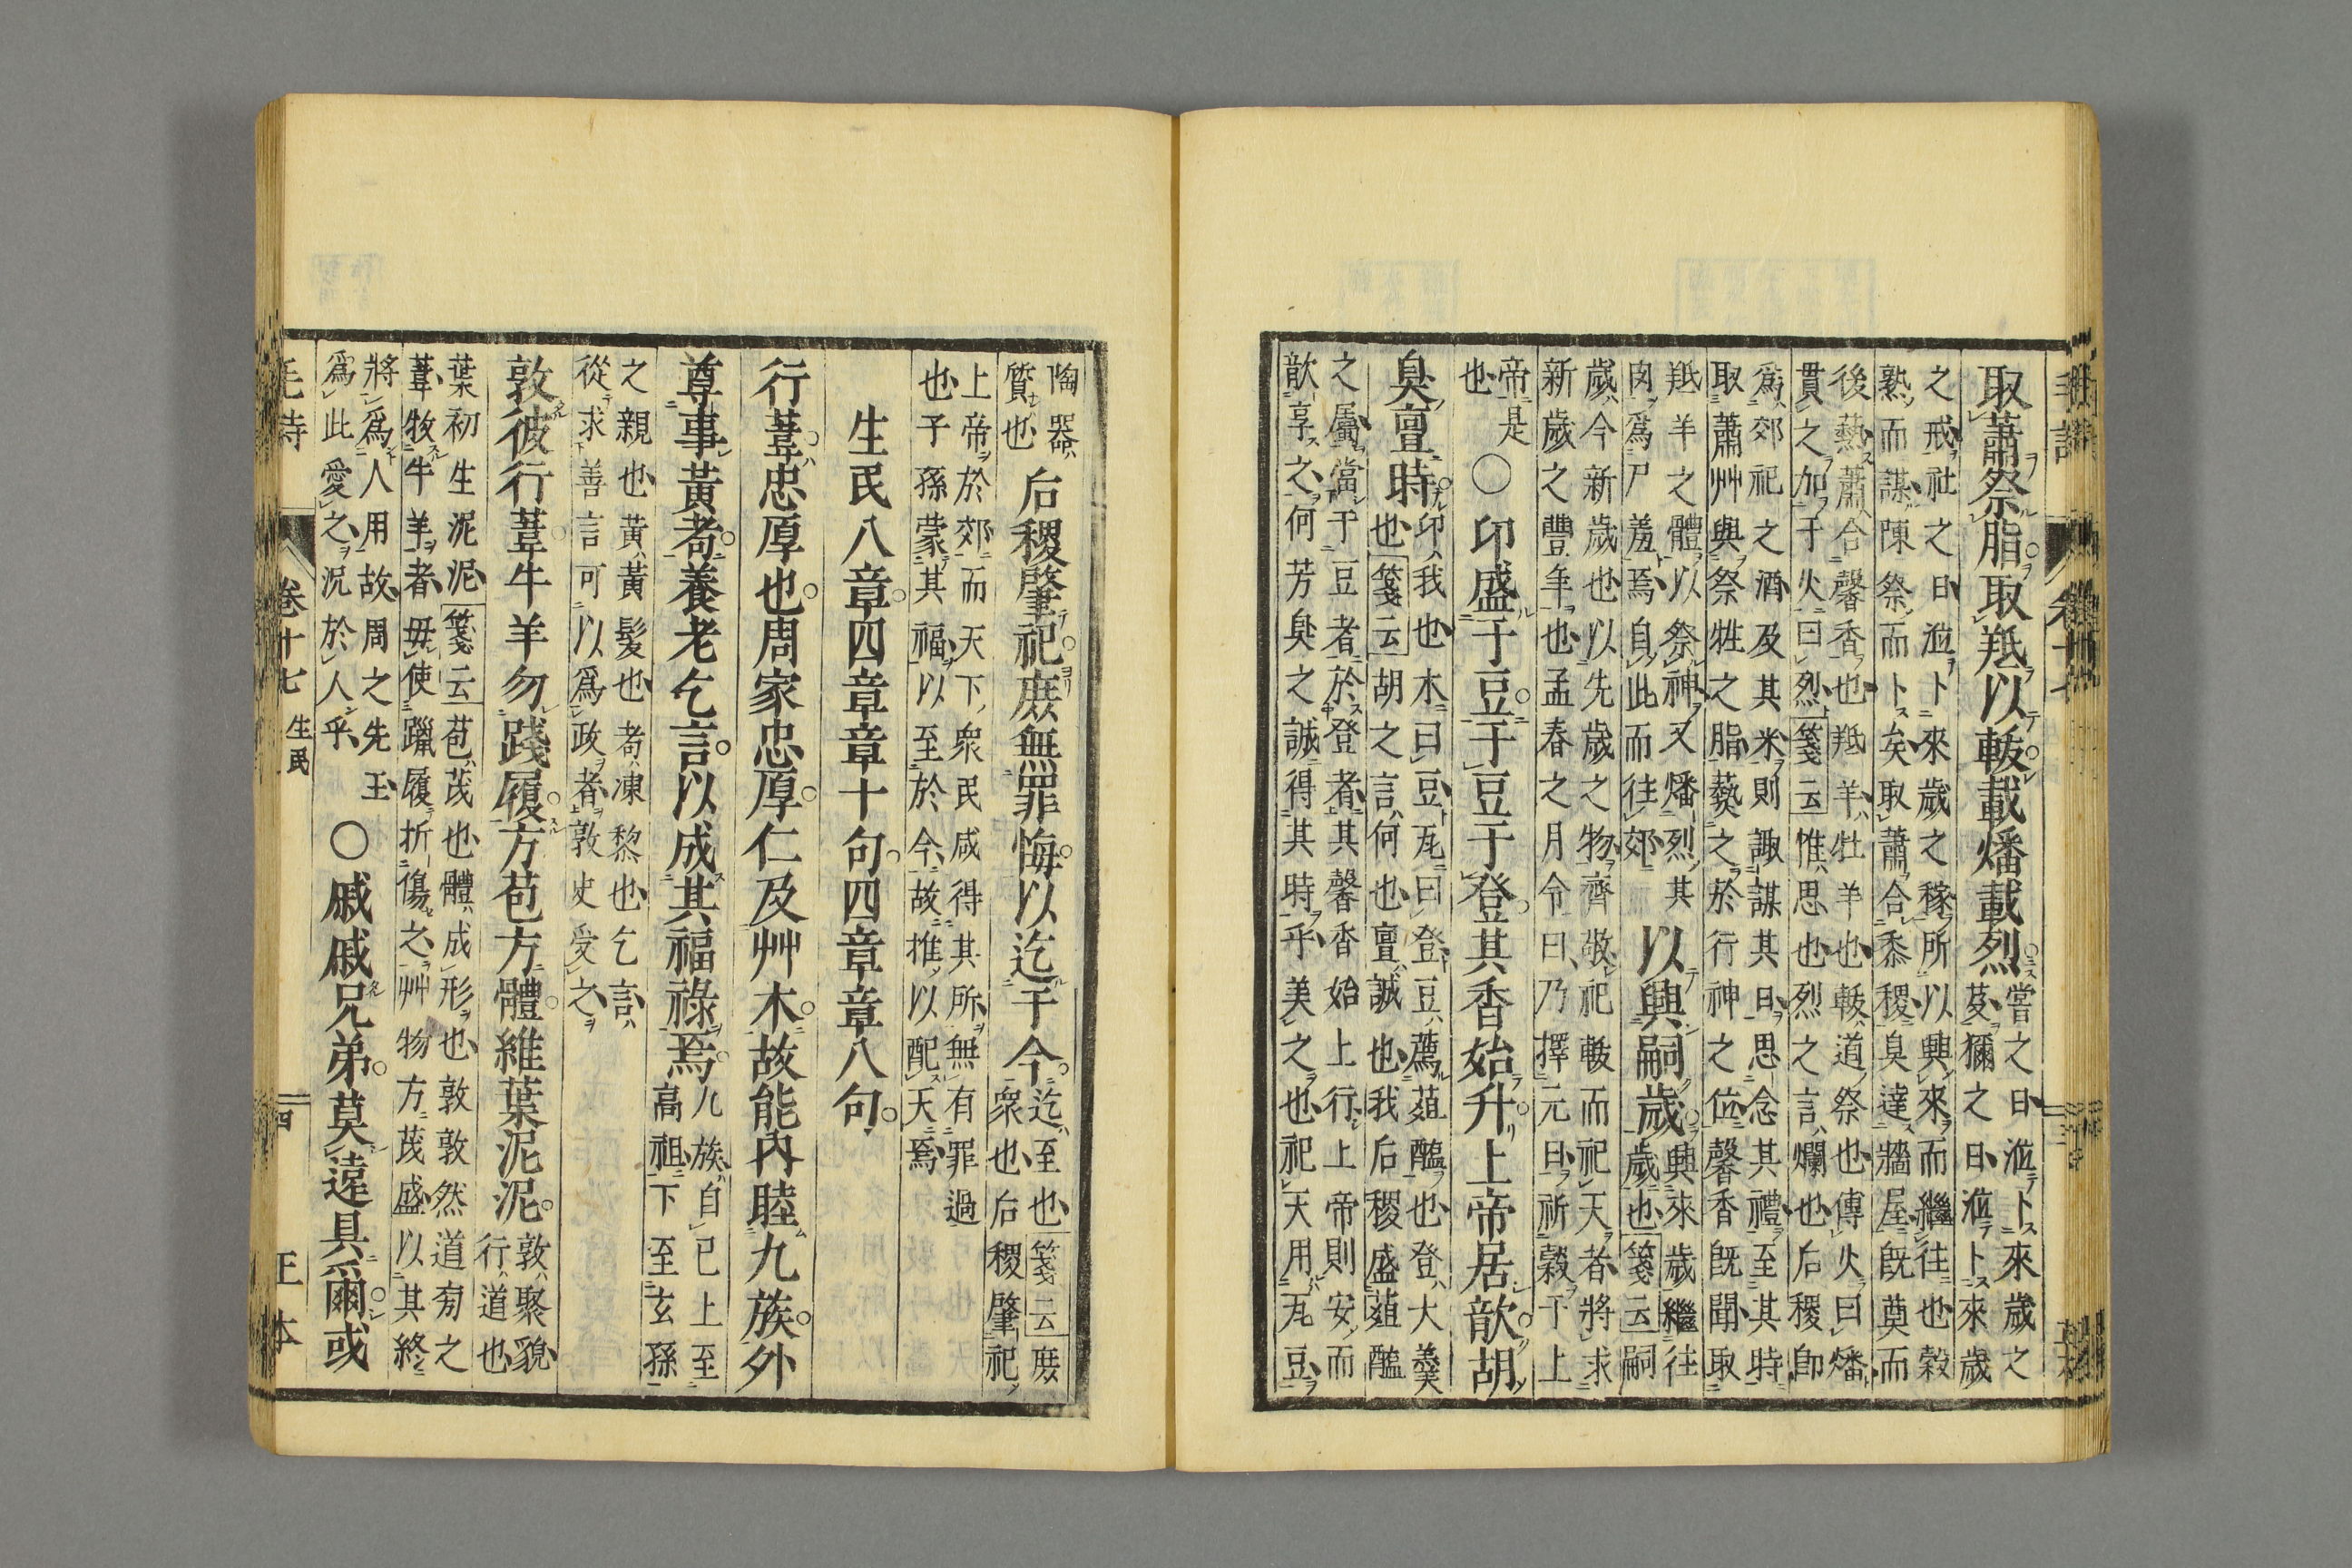 取蕭祭脂取羝以軷載燔載烈
嘗之日涖卜來歲之
芟獮之日涖卜來歲
之戒社之日涖卜來歲之稼所以興來而繼往也穀
熟而謀陳祭而卜矣取蕭合黍稷臭達牆屋旣奠而
後爇蕭合馨香也羝羊牡羊也軷道祭也傳火曰燔
貫之加于火曰烈箋云惟思也烈之言爛也后稷卽
爲郊祀之酒及其米則諏謀其日思念其禮至其時
取蕭艸與祭牲之脂爇之於行神之位馨香旣聞取
羝羊之體以祭神又燔烈其
肉爲尸羞焉自此而往郊
以興嗣歲
興來歲繼往
歲也箋云嗣
歲今新歲也以先歲之物齊敬祀軷而祀天者將求
新歲之豐年也孟春之月令曰乃擇元日祈穀于上
帝是
也
○卬盛于豆于豆于登其香始升上帝居歆胡
臭亶時
卬我也木曰豆瓦曰登豆薦葅醢也登大羹
也箋云胡之言何也亶誠也我后稷盛葅醢
之屬當于豆者於登者其馨香始上行上帝則安而
歆享之何芳臭之誠得其時乎美之也祀天用瓦豆
陶器
質也
后稷肇祀庶無罪悔以迄于今
迄至也箋云庶
衆也后稷肇祀
上帝於郊而天下衆民咸得其所無有罪過
也子孫蒙其福以至於今故推以配天焉
生民八章四章章十句四章章八句
行葦忠厚也周家忠厚仁及艸木故能內睦九族外
尊事黃耇養老乞言以成其福祿焉
九族自己上至
高祖下至玄孫
之親也黃黃髮也耇凍黎也乞言
從求善言可以爲政者敦史受之
敦彼行葦牛羊勿踐履方苞方體維葉泥泥
敦聚貌
行道也
葉初生泥泥箋云苞茂也體成形也敦敦然道旁之
葦牧牛羊者毋使躐履折傷之艸物方茂盛以其終
將爲人用故周之先王
爲此愛之況於人乎
○戚戚兄弟莫遠具爾或
毛詩 卷十七 生民 四